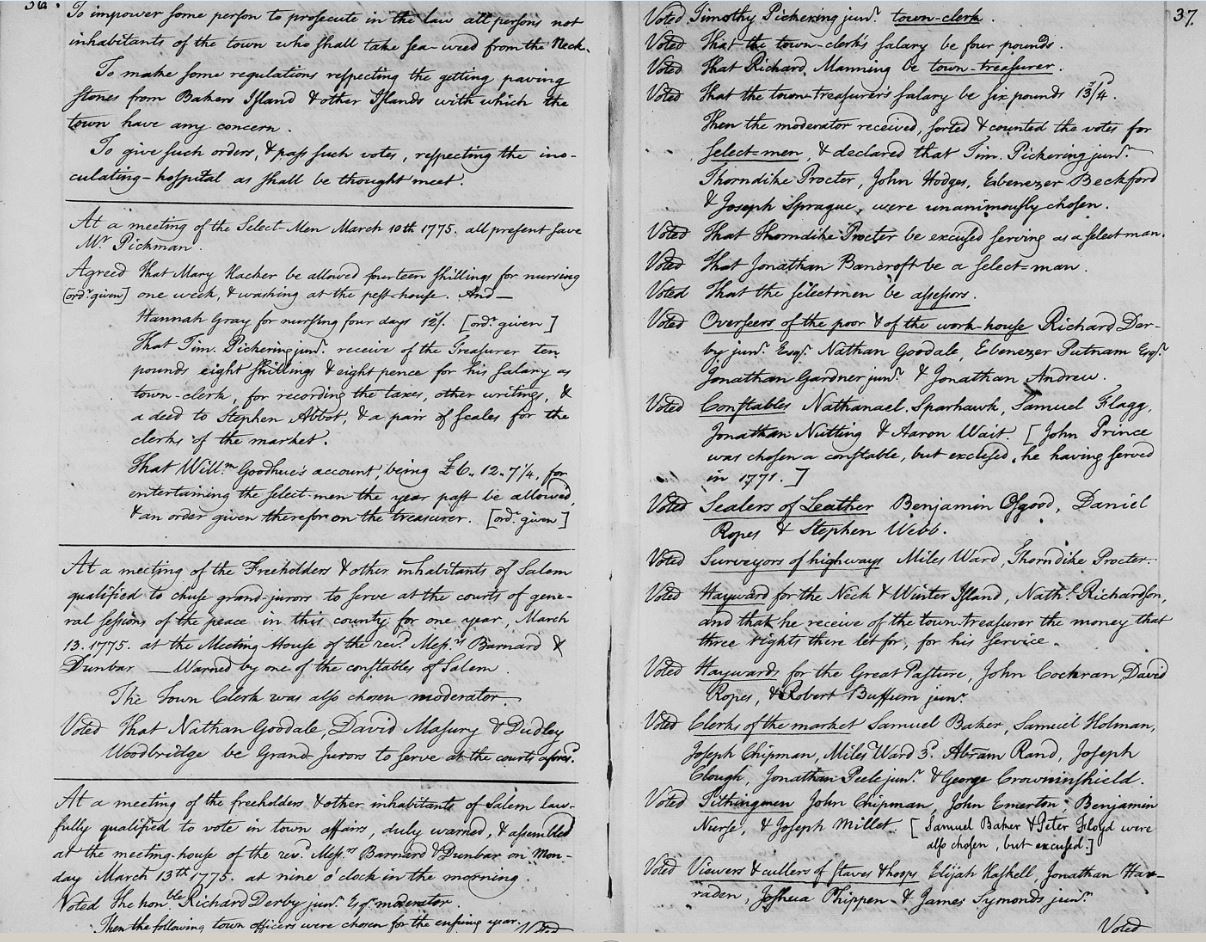 36.
To impower some person to prosecute in the law all persons not
inhabitants of the town who shall take sea-weed from the Neck.
To make some regulations respecting the getting paving
stones from Bakers Island & other Islands with which the
town have any concern.
To give such orders, & pass such votes, respecting the ino-
culating-hospital as shall be thought meet.
At a meeting of the Select-Men March 10th 1775. all present save
Mr Pickman.
Agreed That Mary Hacher be allowed fourteen shillings for nursing
[ordr. given] one week, & washing at the pest-house. And—
Hannah Gray for nursing four days 12/. [ordr. given]
That Tim. Pickering junr. receive of the Treasurer ten
pounds eight shillings & eight pence for his salary as
town-clerk, for recording the taxes, other writings, &
a deed to Stephen Abbot, & a pair of scales for the
clerks of the market.
That Will.m Goodhue's account being £6.. 12.. 7 1/4, for
entertaining the select-men the year past be allowed,
& an order given therefor on the treasurer. [ordr. given]
At a meeting of the Freeholders & other inhabitants of Salem
qualified to chuse grand-jurors to serve at the courts of gene-
ral sessions of the peace in this county for one year, March
13. 1775. at the Meeting-House of the revd. Messrs Barnard &
Dunbar — Warned by one of the constables of Salem
The Town Clerk was also chosen moderator.
Voted That Nathan Goodale, David Masury & Dudley
Woodbridge be Grand Jurors to serve at the courts aforesd.
At a meeting of the freeholders, & other inhabitants of Salem law-
fully qualified to vote in town affairs, duly warned, & assembled
at the meeting-house of the revd. Messrs Barnard & Dunbar on Mon-
day March 13th 1775. at nine o'clock in the morning.
Voted The honble Richard Derby junr. Esqr. moderator.
Then the following town officers were chosen for the ensuing year.
Voted
37.
Voted Timothy Pickering junr. town-clerk.
Voted That the town-clerk's salary be four pounds.
Voted That Richard Manning be town-treasurer.
Voted That the town-treasurer's salary be six pounds 13/4.
Then the moderator received, sorted & counted the votes for
select-men, & declared that Tim. Pickering junr.
Thorndike Procter, John Hodges, Ebenezer Beckford
& Joseph Sprague, were unanimously chosen.
Voted That Thorndike Procter be excused serving as a select man.
Voted That Jonathan Bancroft be a select-man.
Voted That the selectmen be assessors.
Voted Overseers of the poor & of the work-house Richard Der-
by junr. Esqr. Nathan Goodale, Ebenezer Putnam Esqr.
Jonathan Gardner junr. & Jonathan Andrew.
Voted Constables Nathanael Sparhawk, Samuel Flagg,
Jonathan Nutting & Aaron Wait. [John Prince
was chosen a constable, but excused, he having served
in 1771.]
Voted Sealers of Leather Benjamin Osgood, Daniel
Ropes & Stephen Webb.
Voted Surveyors of highways Miles Ward, Thorndike Procter.
Voted Hayward for the Neck & Winter Island, Nathl. Richardson,
and that he receive of the town treasurer the money that
three rights there let for, for his service.
Voted Haywards for the Great Pasture, John Cochran, David
Ropes, & Robert Buffum junr.
Voted Clerks of the market Samuel Baker, Samuel Holman,
Joseph Chipman, Miles Ward 3d. Abram Rand, Joseph
Clough, Jonathan Peele junr. & George Crowninshield.
Voted Tithingmen John Chipman, John Emerton, Benjamin
Nurse, & Joseph Millet. [Samuel Baker & Peter Floyd were
also chosen, but excused.]
Voted Viewers & cullers of staves & hoops Elijah Haskell, Jonathan Har-
raden, Joshua Phippen & James Symonds junr.
Voted